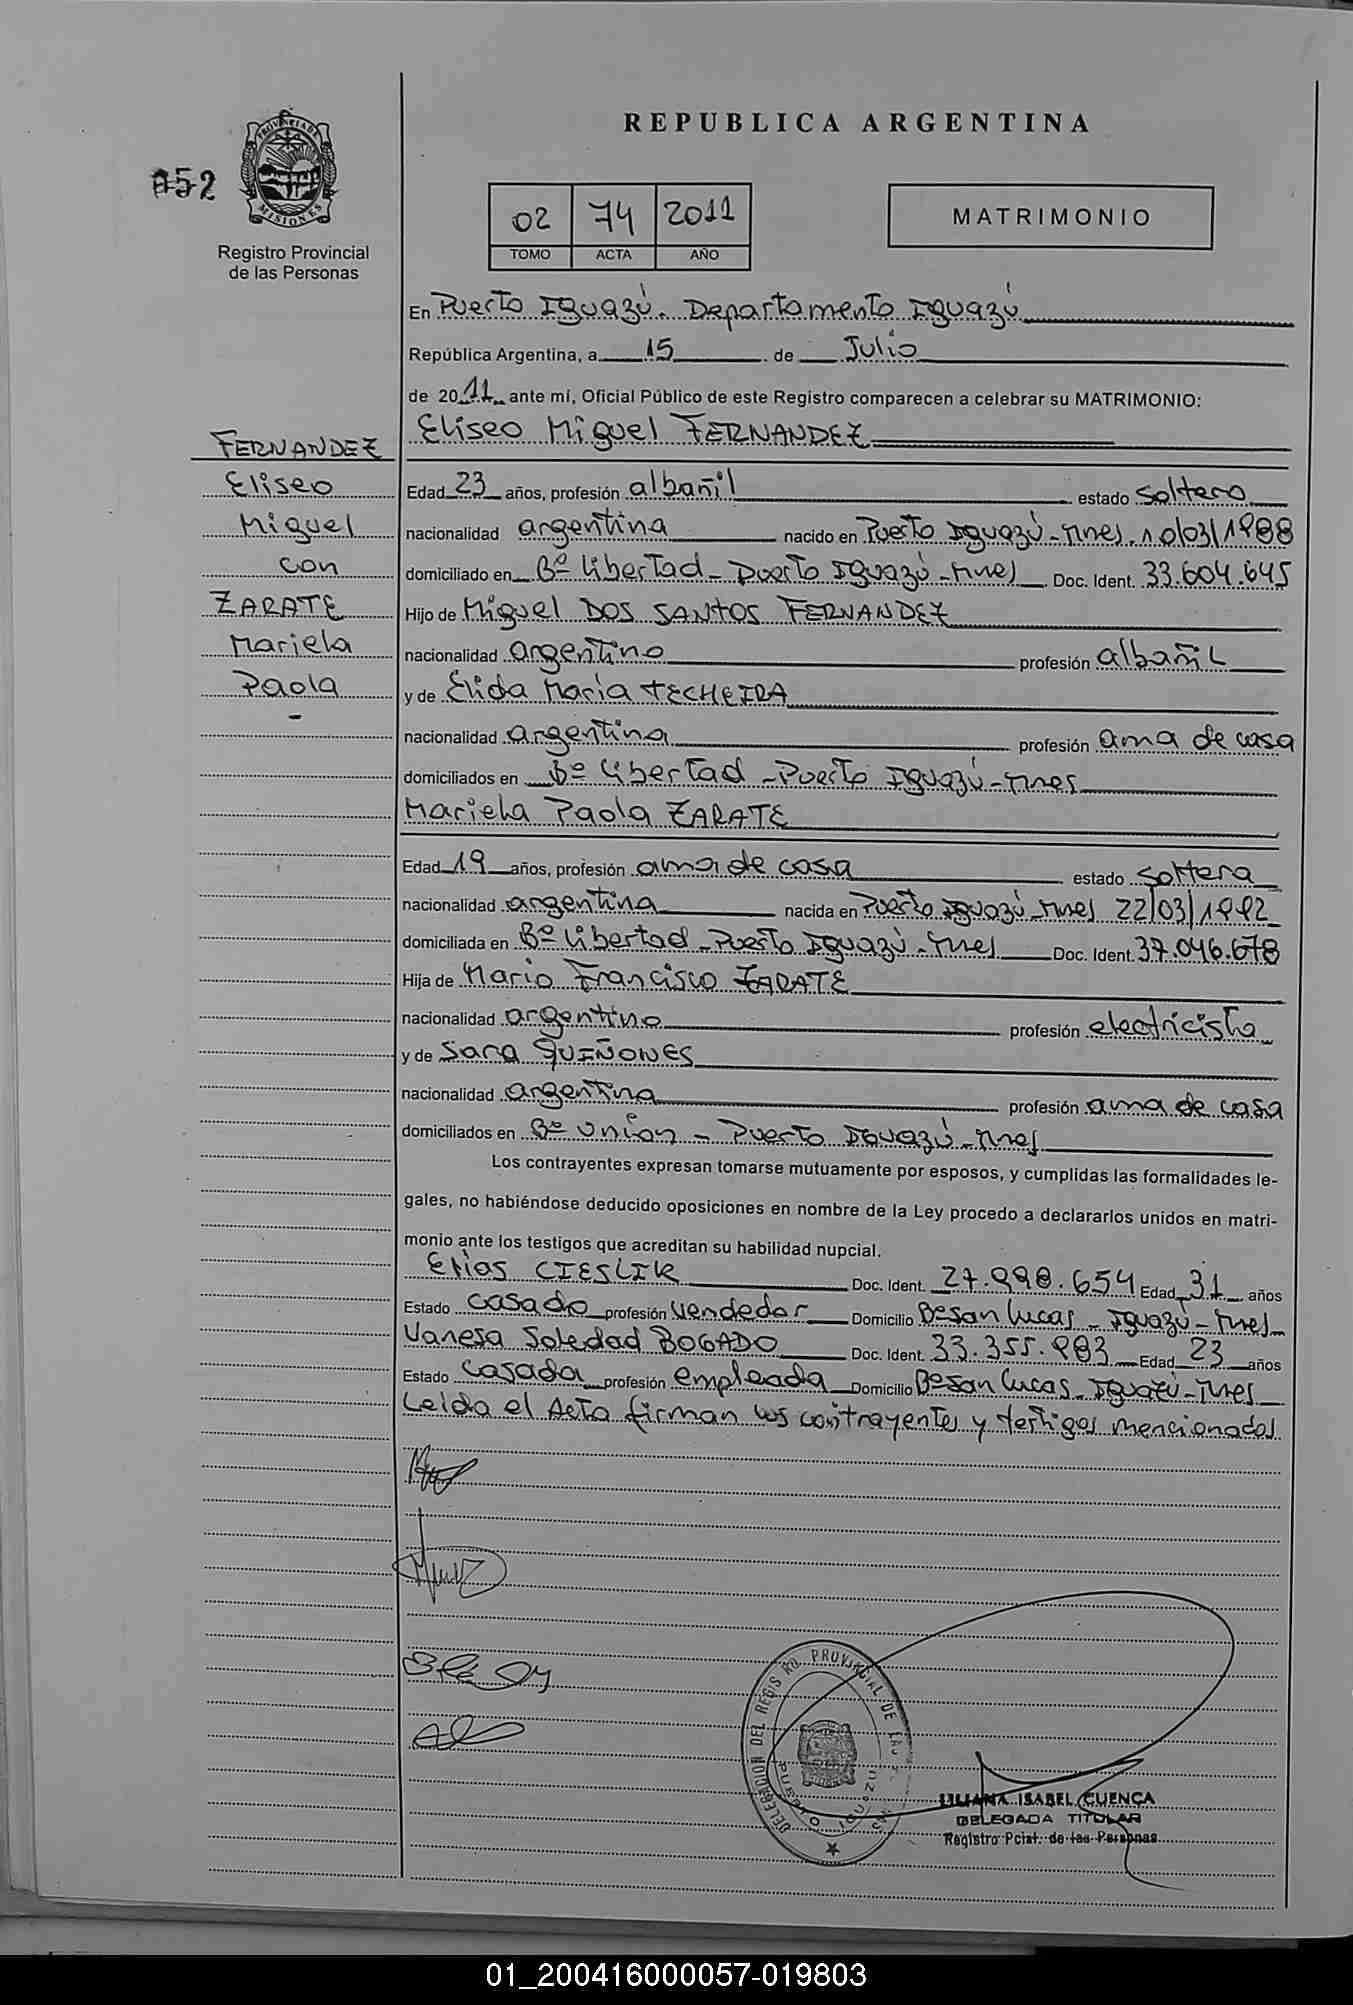 REPUBLICA ARGENTINA
052
PROVINCIA DE MISIONES
Registro Provincial
de las Personas
02 74 2011
TOMO ACTA AÑO
MATRIMONIO
En Puerto Iguazú. Departamento Iguazú
República Argentina, a 15 de Julio
de 2011 ante mí, Oficial Público de este Registro comparecen a celebrar su MATRIMONIO:
Eliseo Miguel FERNANDEZ
FERNANDEZ
Eliseo
Miguel
con
ZARATE
Mariela
Paola
-
Edad 23 años, profesión albañil estado soltero
nacionalidad argentina nacido en Puerto Iguazú-Mnes. 10/03/1988
domiciliado en Bº Libertad - Puerto Iguazú-Mnes Doc. Ident. 33.604.645
Hijo de Miguel DOS SANTOS FERNANDEZ
nacionalidad argentino profesión albañil
y de Elida María TECHEIRA
nacionalidad argentina profesión ama de casa
domiciliados en Bº Libertad - Puerto Iguazú-Mnes
Mariela Paola ZARATE
Edad 19 años, profesión ama de casa estado soltera
nacionalidad argentina nacida en Puerto Iguazú-Mnes 22/03/1992
domiciliada en Bº Libertad - Puerto Iguazú-Mnes Doc. Ident. 37.046.678
Hija de Mario Francisco ZARATE
nacionalidad argentino profesión electricista
y de Sara QUIÑONES
nacionalidad argentina profesión ama de casa
domiciliados en Bº Union - Puerto Iguazú-Mnes
Los contrayentes expresan tomarse mutuamente por esposos, y cumplidas las formalidades le-
gales, no habiéndose deducido oposiciones en nombre de la Ley procedo a declararlos unidos en matri-
monio ante los testigos que acreditan su habilidad nupcial.
Elias CIESLIK Doc. Ident. 27.998.654 Edad 31 años
Estado casado profesión vendedor Domicilio Bº San Lucas - Iguazú-Mnes
Vanesa Soledad BOGADO Doc. Ident. 33.355.983 Edad 23 años
Estado casada profesión empleada Domicilio Bº San Lucas - Iguazú-Mnes
Leida el Acta firman los contrayentes y testigos mencionados
DELEGACION DEL REGISTRO PROVINCIAL DE LAS
PUERTO IGUAZU
LILIANA ISABEL CUENCA
DELEGADA TITULAR
Registro Pcial. de las Personas
01_200416000057-019803